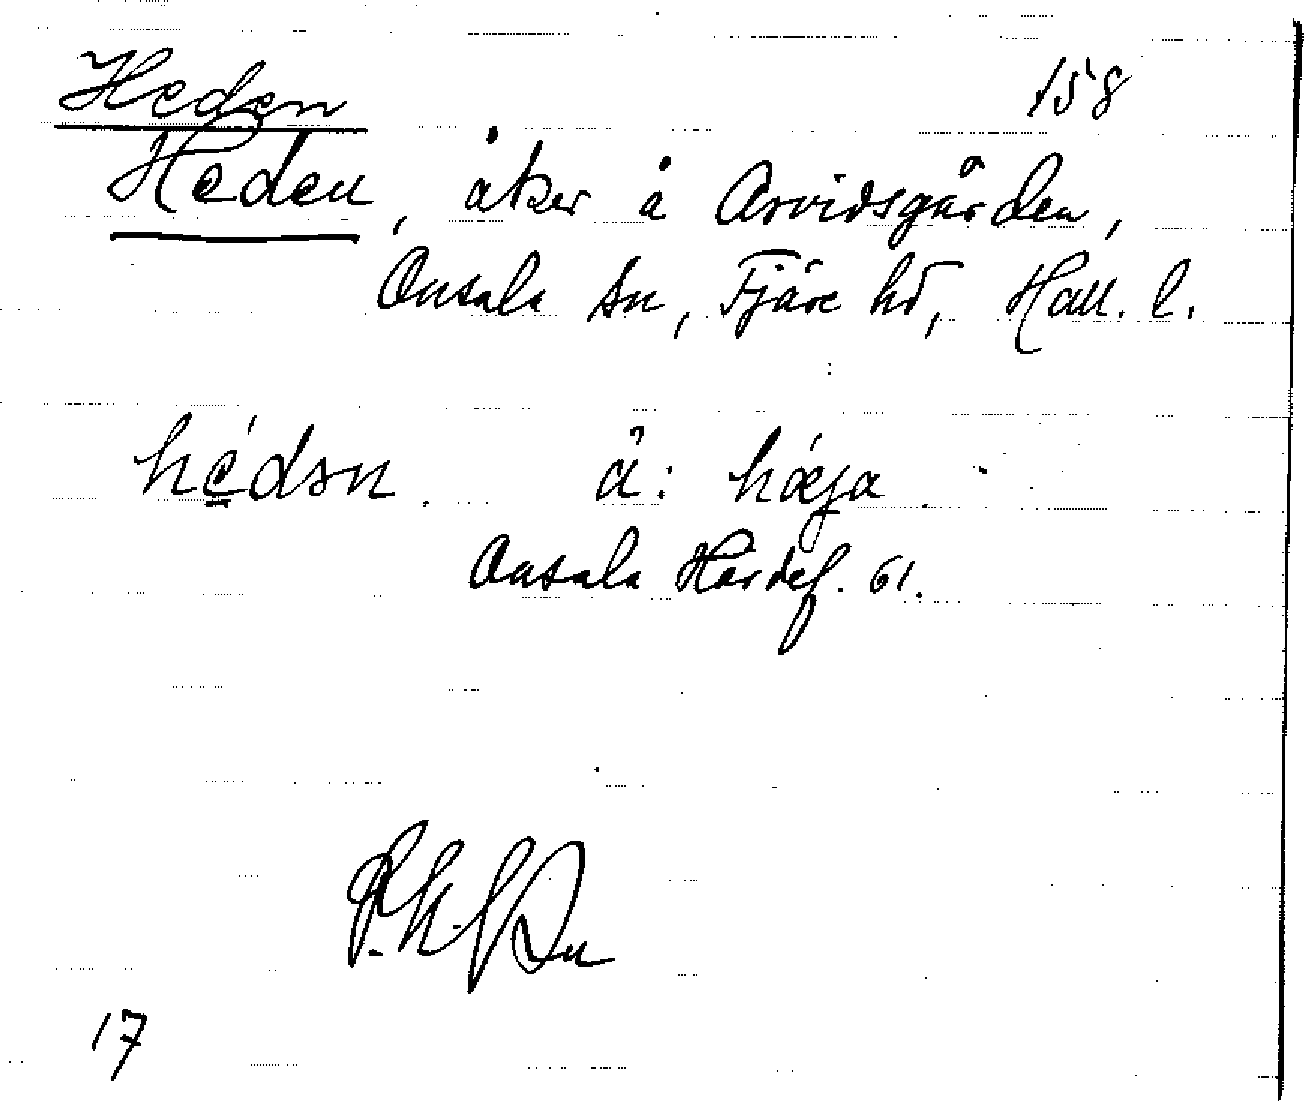 Heden 158
Heden, åker å Arvidsgården,
Onsala sn, Fjäre hd, Hall. l.
hédən. å: hǽja
Onsala Hördef. 61.
17